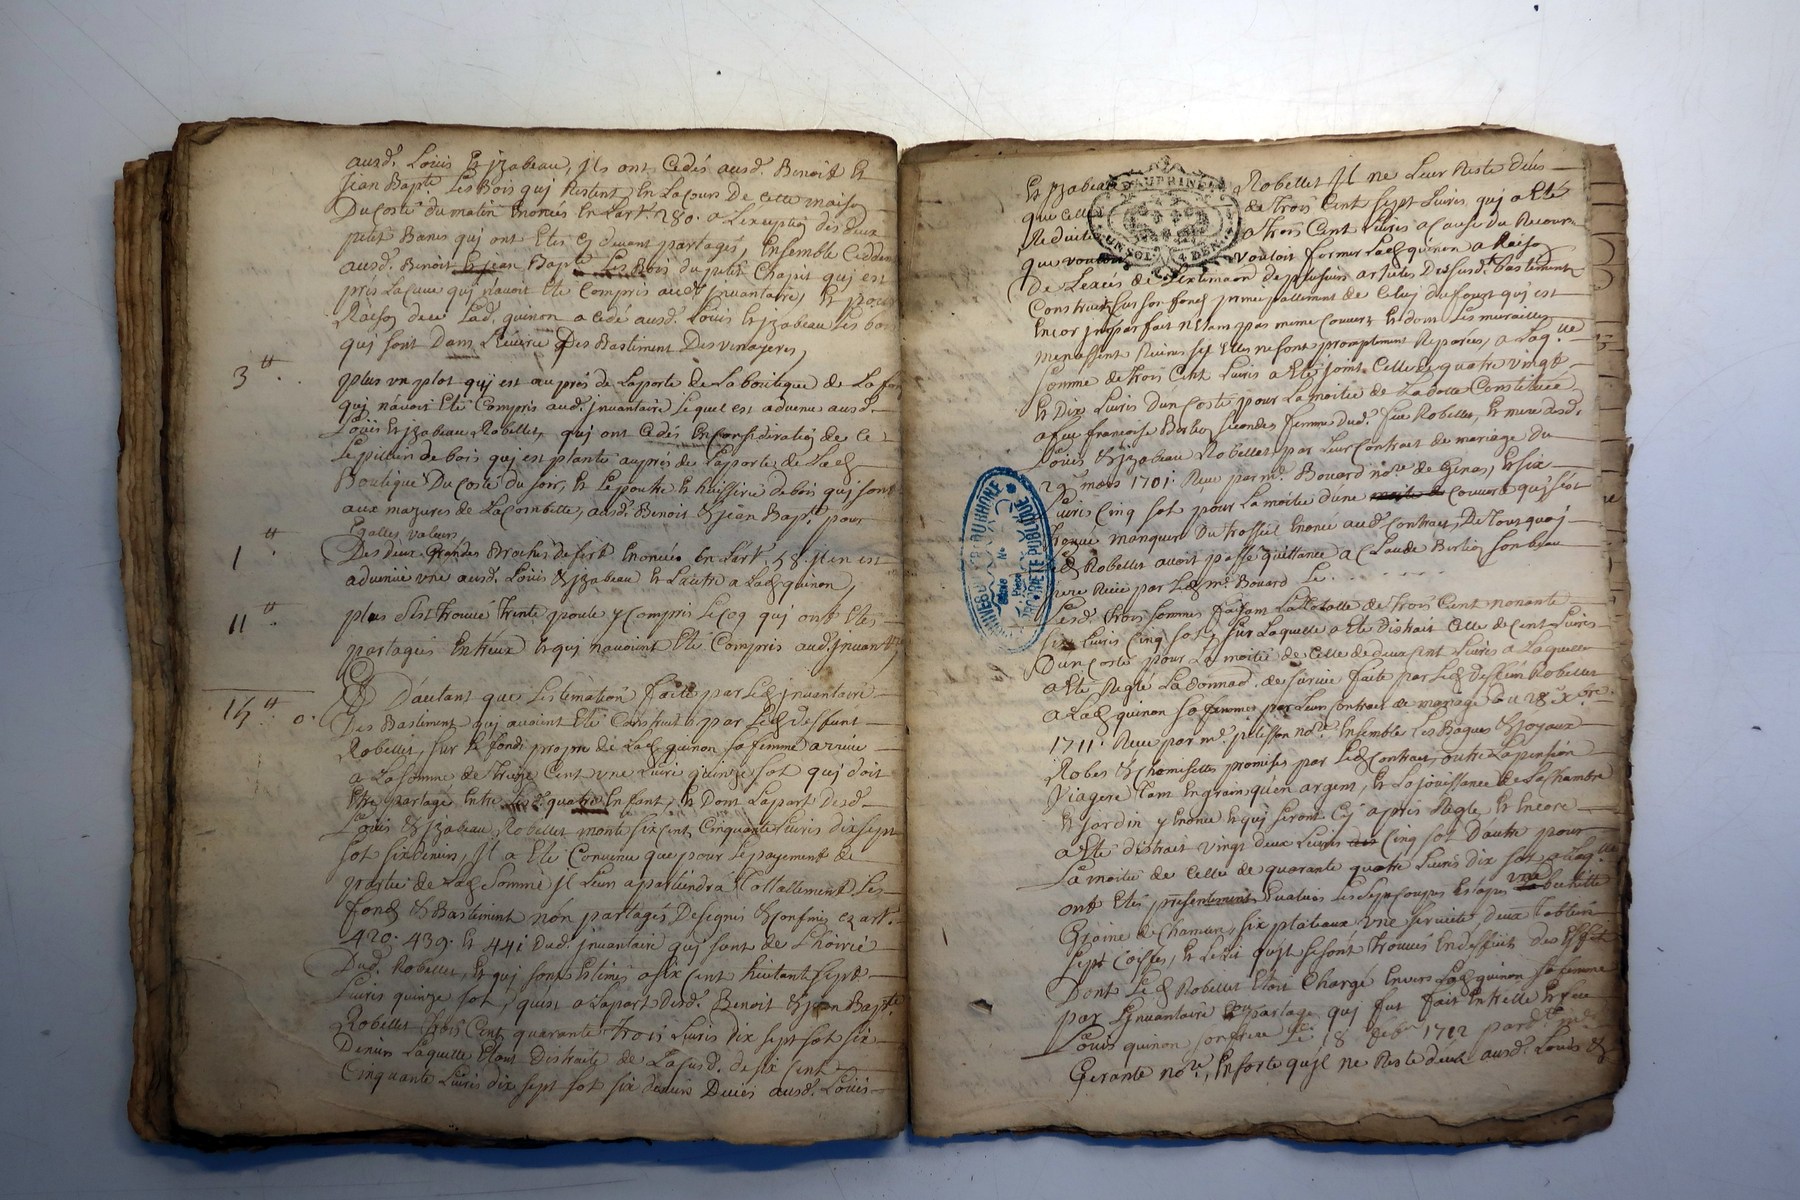 ausd. Louis et jzabeau, jls ont Cedés ausd. Benoit et
Jean Bapte Les Bois quj Restent en La Cour De Cette maison
Du Costé du matin Enoncés En L'art. 280. a L'exeption des deux
petit Bancs quj ont Etes cy devant partagés, Ensemble
ausd. Benoit Et jean Bapte Les Bois du petit Chapit quj est
pres La Cuve quj n'avoit Eté Compris aud. jnvantaire, Et pour
Raison de ce Lad. quinon a cedé ausd. Louis Et jzabeau Les bois
quj sont Dans L'Ecurie Des Bastiment Des vinayeres,
3 tt
plus vn plot quj est auprés de La porte De La boutique de La
quj n'avoit Eté Compris aud. jnvantaire Lequel est advenu ausd.
Louis Et jzabeau Robellet, quj ont Cedés En Consideration de Ce
Le pillier de bois quj est planté auprés de La porte de Lad.
Boutique Du Costé du soir, Et Le poutre Et huisserie de bois quj sont
aux mazures de La Combette, ausd. Benoit Et jean Bapt. pour
Egalles valeurs
1 tt
Des deux Grandes Broches de fert Enoncées En L'art. 58. jl en est
advenüe vne ausd. Louis Et jzabeau Et L'autre a Lad. quinon,
11 tt
plus s'est trouvé trente poule y Compris Le Coq quj ont Etes
partagées Entreux Et quj n'avoient Eté Compris aud. jnvantre
15 tt 0.
D'autant que L'estimation faite par Led. jnvantaire
Des Bastiment quj avoient Eté Construit par Led. deffunt
Robellet, sur Le fond propre de Lad. quinon sa femme arrive
a La somme de treize Cent vne Livre quinze sot quj doit
Etre partagé Entre quatre Enfant, Et Dont La part Desd.
Louis Et jzabeau Robellet monte six Cent Cinquante Livres dix sept
sot six Deniers, jl a Eté Convenu que pour Le payement de
partie de Lad. Somme jl Leur apartiendra Tottallement Les
fond Et Bastiment non partagés Designés Et Confinés Ez art.
420. 439. Et 441 Dud. jnvantaire quj sont de L'hoirie
Dud. Robellet, Et quj sont Estimés a six Cent huitante sept
Livres quinze sot, quest a La part Desd. Benoit Et jean Bapte
Robellet trois Cent quarante trois Livres dix sept sot six
Deniers Laquelle Etant Distraite de La susd. de six Cent
Cinquante Livres dix sept sot six deniers Dües ausd. Louis
Et jzabeau Robellet jl ne Leur Reste Deüs
que Celle de trois Cent sept Livres, quj a Eté
Reduite a trois Cent Livres a Cause du Recour
que vouloit vouloit former Lad. quinon a Raison
DAUPHINE
UN SOL 4 DEN.
De L'exces de L'Estimaon de plusieurs articles Desd. Bastiment
Construit sur son fond, prinsipallement de Celuj du four quj est
Encor jmparfait n'Etant pas meme Couvert Et dont Les murailles
menassent Ruines sy Elles ne sont promptement Reparées, a Laqlle
somme de trois Cent Livres a Eté joint Celle de quatre vingt
Et Dix Livres d'un Costé pour La moitié de La dotte Constituée
a feu françoise Berlioz secondes femme dud. feu Robellet, Et mere desd.
Louis Et jzabeau Robellet par Leur Contrat de mariage du
29e mars 1701. Reçu par me. Bouard nore. de Genas, Et six
Livres Cinq sot pour La moitié d'une Couverte quj s'est
trouvé manquer Du trossel Enoncé aud. Contrat, De tout quoy
Led. Robellet avoit passé quittance a Claude Berlioz son beau
pere Reçüe par Led. me. Bouard Le . . . . . .
Lesd. trois sommes faisant La totalle de trois Cent nonante
six Livres Cinq sot, sur Laquelle a Eté distrait Celle de Cent Livres
D'un Costé pour La moitié de Celle de deux Cent Livres a Laquelle
a Eté Reglé La donnaon. de survie faite par Led. deffunt Robellet
a Lad. quinon sa femme par Leur Contrat de mariage du 28e xbre.
1711. Reçu par me. pelisson nore. Ensemble Les Bagues Et joyaux
Robes Et Chemisettes promises par Led. Contrat, outre La pension
Viagere tant En grains qu'En argent, Et La jouissance de La Chambre
Et jardin y Enoncé Et quj seront Cy aprés Reglé, Et Encore
a Eté distrait vingt deux Livres Cinq sot D'autre pour
La moitié de Celle de quarante quatre Livres dix sot a Laqlle
ont Etés presentement Evalués Les sept Coupes Et vne bichette
Graine de Chamure, six plateaux vne serviete, deux tablieres
sept Coiffes, Et Le Lit qu'jl se sont trouvés En deffaut des Effet
Dont Led. Robellet Etoit Chargé Envers Lad. quinon sa femme
par L'jnvantaire Et partage quj fut fait Entr'Elle Et feu
Louis quinon son frere Le 18 1712 par
Gerante nore, En sorte qu'jl ne Reste deub ausd. Louis Et
ARCHIVES DU RHONE
PROPRIÉTÉ PUBLIQUE